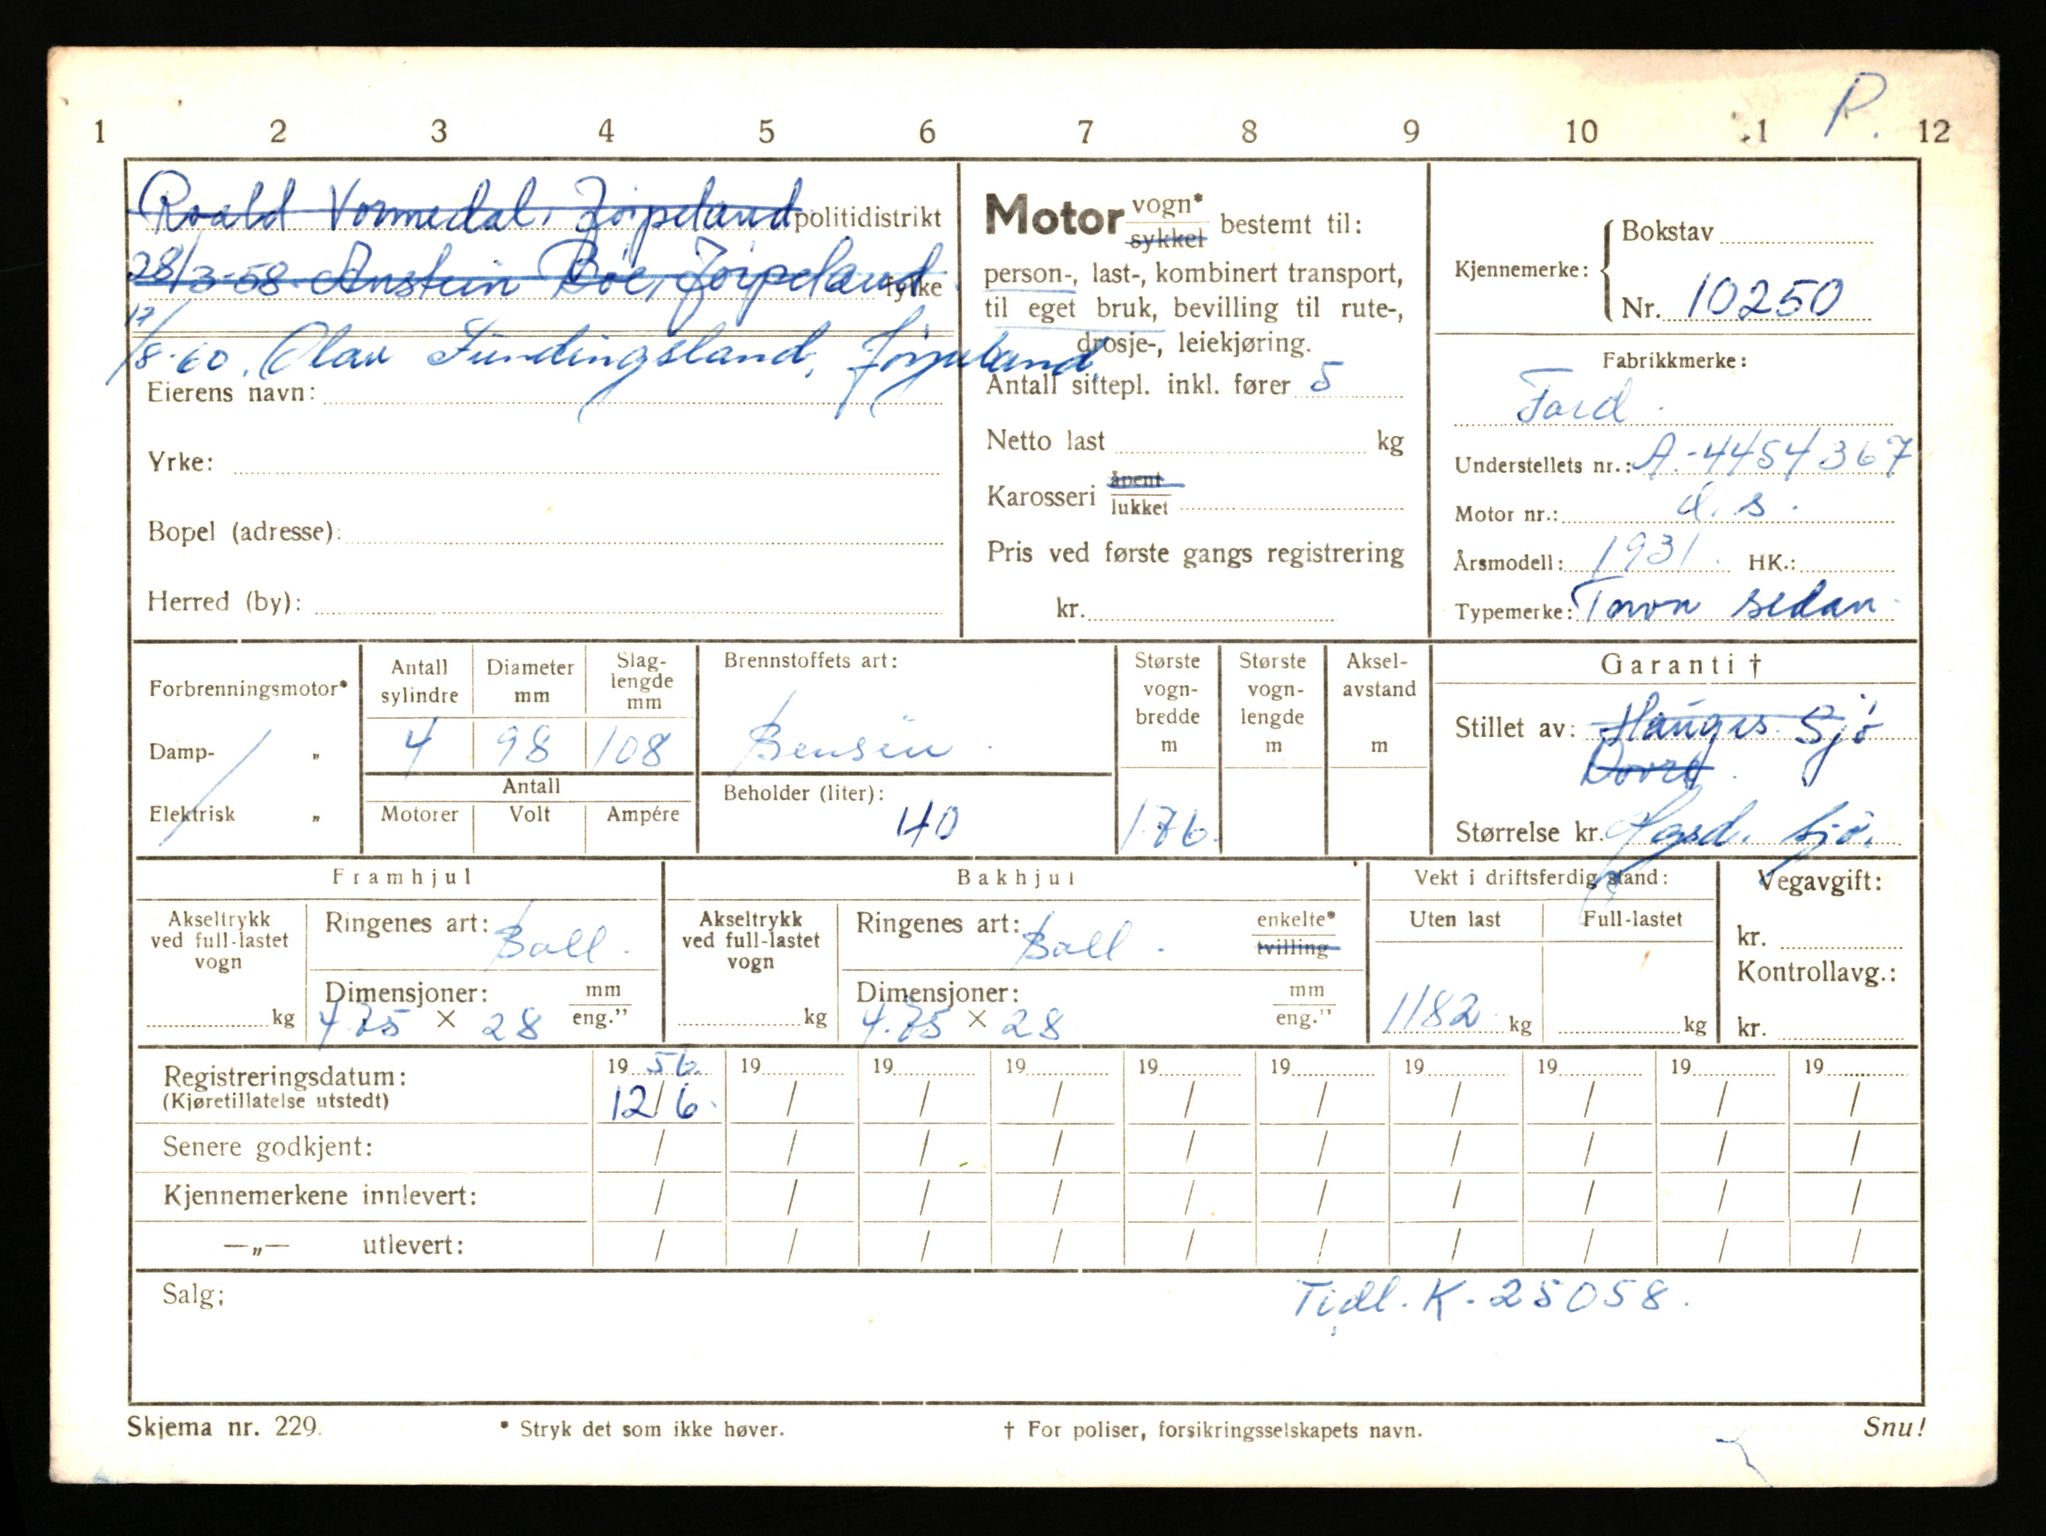 P.
1 2 3 4 5 6 7 8 9 10 11 12
Roald Vormedal, Jørpeland politidistrikt
28/3-58. Anstein Bøe, Jørpeland fylke
17/8-60. Olav Fundingsland, Jørpeland
Eierens navn:
Yrke:
Bopel (adresse):
Herred (by):
Motor vogn* sykkel bestemt til:
person-, last-, kombinert transport,
til eget bruk, bevilling til rute-,
drosje-, leiekjøring.
Antall sittepl. inkl. fører 5
Netto last kg
Karosseri åpent lukket
Pris ved første gangs registrering
kr.
Kjennemerke: Bokstav
Nr. 10250
Fabrikkmerke:
Ford.
Understellets nr.: A.-4454367
Motor nr.: d.s.
Årsmodell: 1931. HK.:
Typemerke: Town sedan.
Forbrenningsmotor*
Damp- „
Elektrisk „
Antall sylindre 4
Diameter mm 98
Slag-lengde mm 108
Antall
Motorer Volt Ampére
Brennstoffets art:
Bensin.
Beholder (liter):
40
Største vogn-bredde m 1.76.
Største vogn-lengde m
Aksel-avstand m
Garanti †
Stillet av: Hauges. Sjø
Dovre.
Størrelse kr. sjø.
Framhjul
Akseltrykk ved full-lastet vogn
kg
Ringenes art: Ball.
Dimensjoner: mm eng."
4.75 × 28
Bakhjul
Akseltrykk ved full-lastet vogn
kg
Ringenes art: Ball. enkelte* tvilling
Dimensjoner: mm eng."
4.75 × 28
Vekt i driftsferdig stand:
Uten last Full-lastet
1182 kg kg
Vegavgift:
kr.
Kontrollavg.:
kr.
Registreringsdatum: 19 56. 19 19 19 19 19 19 19 19 19
(Kjøretillatelse utstedt) 12/6. / / / / / / / / /
Senere godkjent: / / / / / / / / / /
Kjennemerkene innlevert: / / / / / / / / / /
—„— utlevert: / / / / / / / / / /
Salg:
Tidl. K-25058.
Skjema nr. 229. * Stryk det som ikke høver. † For poliser, forsikringsselskapets navn. Snu!